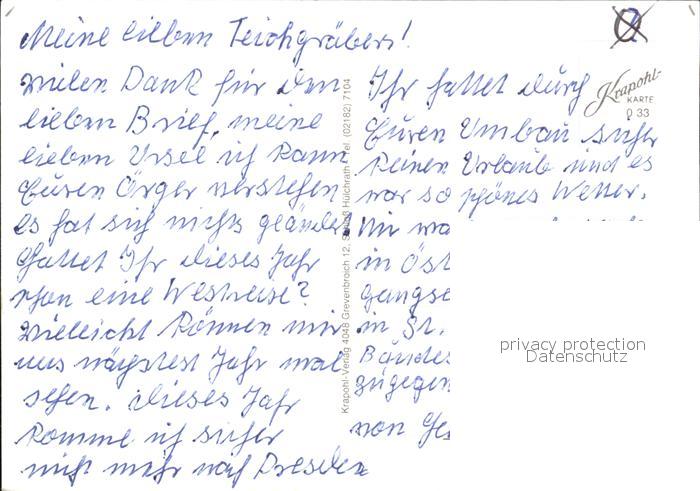 Meine lieben Teichgräbers!
vielen Dank für den
lieben Brief, meine
lieben Ursel ich kann
Euren Ärger verstehen
es hat sich nichts geändert
Hattet Ihr dieses Jahr
schon eine Westreise?
Vieleicht können wir
uns nächstes Jahr mal
sehen. Dieses Jahr
komme ich sicher
nicht mehr nach Dresden
Ihr hattet durch
Euren Umbau sicher
keinen Urlaub und es
war so schönes Wetter.
Wir wa
in Öst
gangse
in St.
Bundes
zugegen
von Ge
Krapohl-Verlag 4048 Grevenbroich 12, Schloß Hülchrath, Tel. (02182) 7104
Krapohl-
KARTE
D 33
privacy protection
Datenschutz